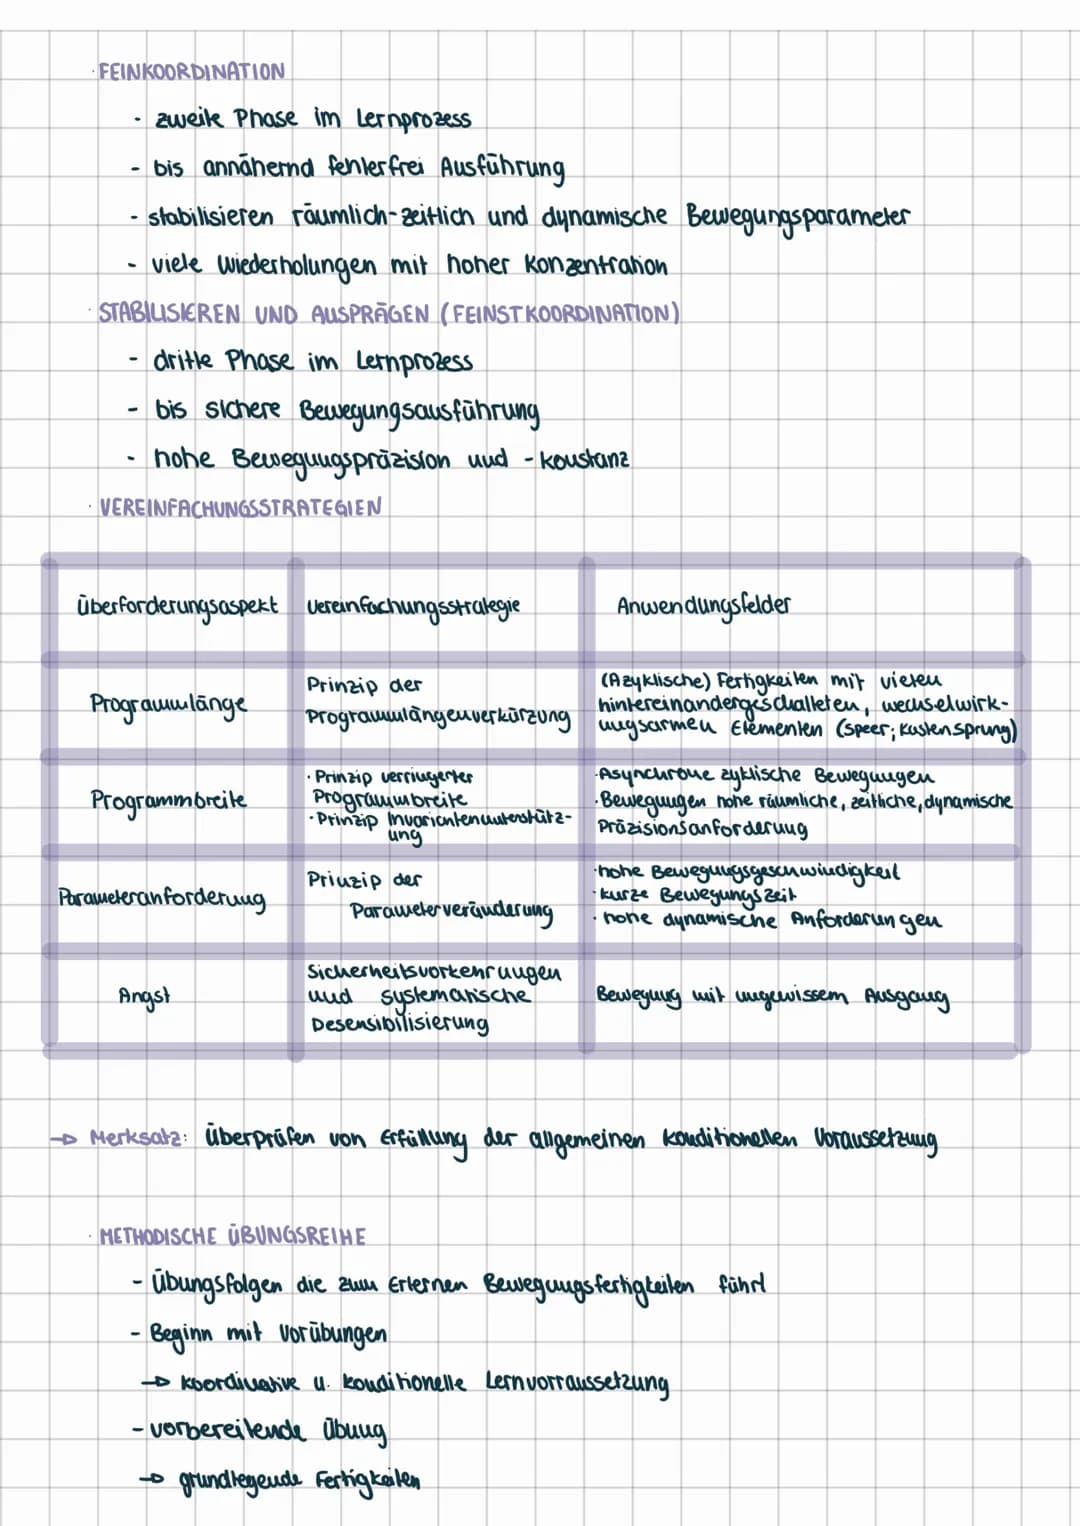 · FEINKOORDINATION
- zweite Phase im Lernprozess
- bis annähernd fehlerfrei Ausführung
- stabilisieren räumlich-zeitlich und dynamische Bewegungsparameter
- viele Wiederholungen mit hoher Konzentration
· STABILISIEREN UND AUSPRÄGEN (FEINSTKOORDINATION)
- dritte Phase im Lernprozess
- bis sichere Bewegungsausführung
- hohe Bewegungspräzision und -konstanz
· VEREINFACHUNGSSTRATEGIEN
Überforderungsaspekt Vereinfachungsstrategie Anwendungsfelder
Programmlänge
Prinzip der
Programmlängenverkürzung
(Azyklische) Fertigkeiten mit vielen
hintereinandergeschalteten, wechselwirk-
ungsarmen Elementen (Speer; Kastensprung)
Programmbreite
· Prinzip verringerter
Programmbreite
· Prinzip Invariantenunterstütz-
ung
· Asynchrone zyklische Bewegungen
· Bewegungen hohe räumliche, zeitliche, dynamische
Präzisionsanforderung
Parameteranforderung
Prinzip der
Parameterveränderung
· hohe Bewegungsgeschwindigkeit
· kurze Bewegungszeit
· hohe dynamische Anforderungen
Angst
Sicherheitsvorkehrungen
und systematische
Desensibilisierung
Bewegung mit ungewissem Ausgang
→ Merksatz: Überprüfen von Erfüllung der allgemeinen konditionellen Voraussetzung
· METHODISCHE ÜBUNGSREIHE
- Übungsfolgen die zum Erlernen Bewegungsfertigkeiten führt
- Beginn mit Vorübungen
→ koordinative u. konditionelle Lernvorraussetzung
- vorbereitende Übung
→ grundlegende Fertigkeiten